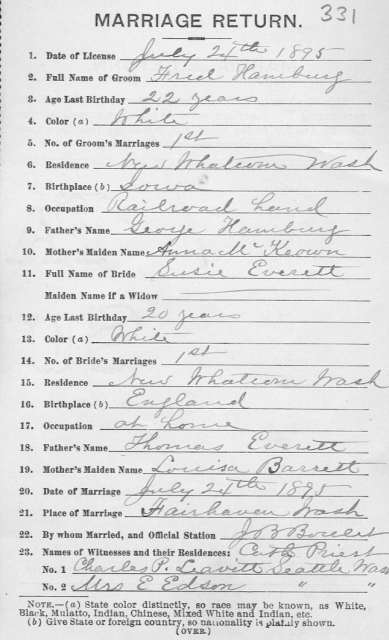 331
MARRIAGE RETURN.
1. Date of License July 24th 1895
2. Full Name of Groom Fred Hamburg
3. Age Last Birthday 22 years
4. Color (a) White
5. No. of Groom's Marriages 1st
6. Residence New Whatcom Wash
7. Birthplace (b) Iowa
8. Occupation Railroad hand
9. Father's Name George Hamburg
10. Mother's Maiden Name Anna McKeown
11. Full Name of Bride Susie Everett
Maiden Name if a Widow
12. Age Last Birthday 20 years
13. Color (a) White
14. No. of Bride's Marriages 1st
15. Residence New Whatcom Wash
16. Birthplace (b) England
17. Occupation at home
18. Father's Name Thomas Everett
19. Mother's Maiden Name Louisa Barrett
20. Date of Marriage July 24th 1895
21. Place of Marriage Fairhaven Wash
22. By whom Married, and Official Station J B
23. Names of Witnesses and their Residences: Priest
No. 1 Charles P. Leavitt Seattle Wash
No. 2 Mrs E Edson " "
NOTE.—(a) State color distinctly, so race may be known, as White,
Black, Mulatto, Indian, Chinese, Mixed White and Indian, etc.
(b) Give State or foreign country, so nationality is plainly shown.
(OVER.)